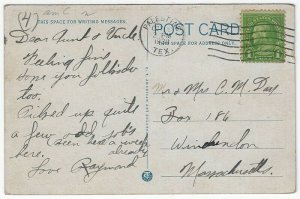 THIS SPACE FOR WRITING MESSAGES
POST CARD
THIS SPACE FOR ADDRESS ONLY
TEX.
Dear Aunt & Uncle
Feeling fine
hope you folks do
too.
Picked up quite
a few odd jobs
Been here a week
here already
Love Raymond
Mr & Mrs C. M. Day
Box 186
Winchendon
Massachusetts.